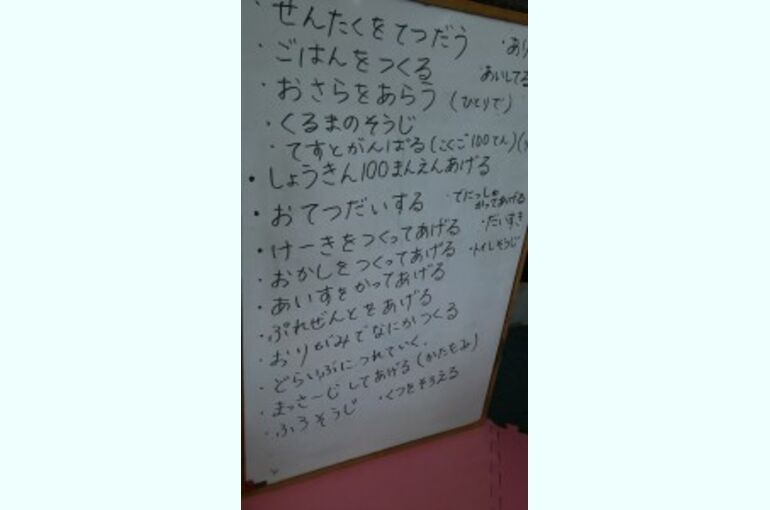 ・せんたくをてつだう
・あり
・ごはんをつくる
・あいしてる
・おさらをあらう(ひとりで)
・くるまのそうじ
・てすとがんばる(こくご100てん)(
・しょうきん100まんえんあげる
・おてつだいする
・てにっしゅ
かってあげる
・けーきをつくってあげる
・だいすき
・おかしをつくってあげる
・トイレそうじ
・あいすをかってあげる
・ぷれぜんとをあげる
・おりがみでなにかつくる
・どらいぶにつれていく。
・まっさーじしてあげる(かたもみ)
・ふろそうじ ・くつをそろえる